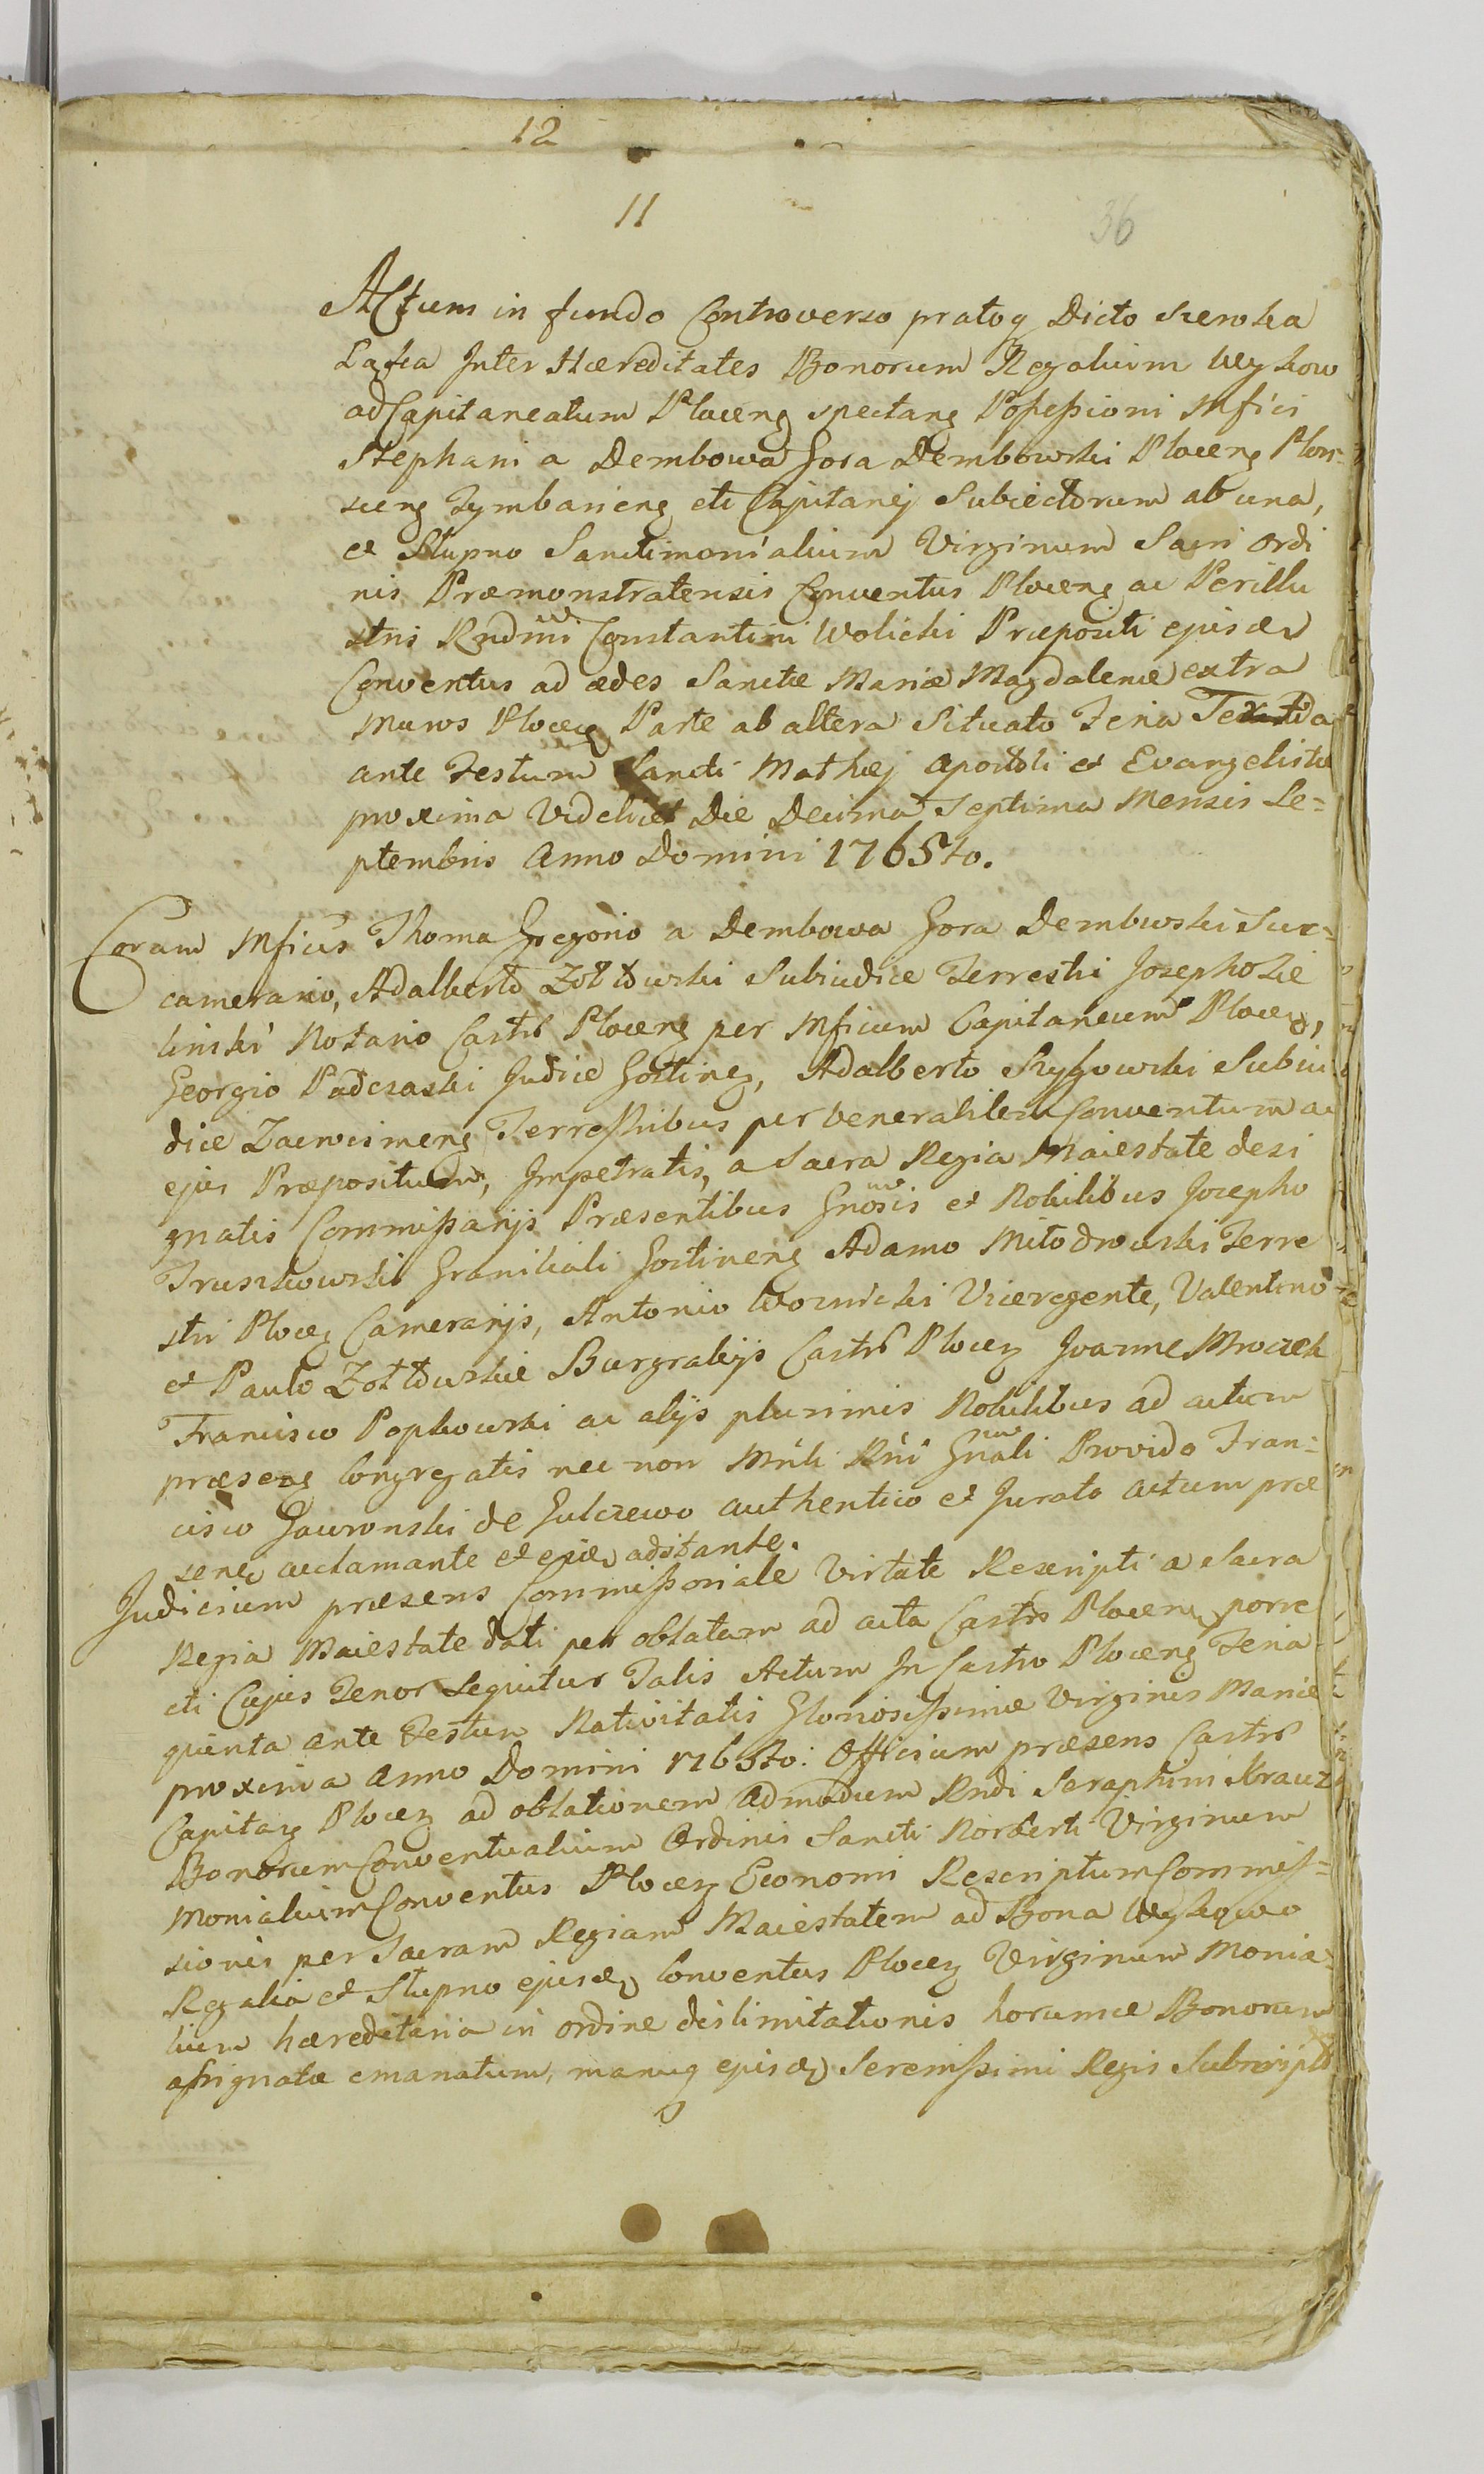 12
11
36
Actum in fundo Controverso pratoq Dicto Szeroka
Łąka Inter Hæreditates Bonorum Regalium Wykow
ad Capitaneatum Plocen spectan Possessioni Mfici
Stephani a Dembowa Gora Dembowski Plocen Plon=
scen Tymbarien etc Capitanej Subiectorum ab una,
et Słupno Sanctimonialium Virginum Sacri Ordi
nis Præmonstratensis Conventus Plocen ac Perillu
stris Rndmi Constantini Wolicki Præpositi ejusd
Conventus ad ædes Sanctæ Mariæ Magdalenæ extra
Muros Plocen Parte ab altera Situato Feria Tertia
ante Festum Sancti Mathæj Apostoli et Evangelistæ
proxima Videlicet Die Decima Septima Mensis Se=
ptembris Anno Domini 1765to.
Coram Mficis Thoma Gregorio a Dembowa Gora Dembowski Suc=
camerario, Adalberto Zółtowski Subiudice Terrestri Josepho Zie
linski Notario Castr Plocen per Mficum Capitaneum Plocen,
Georgio Padczaski Judice Gostinen, Adalberto Szyszowski Subiu
dice Zacwrimen Terrestribus per Venerabilem Conventum ac
ejus Præpositum, Impetratis, a Sacra Regia Maiestate desi
gnatis Commissarijs Præsentibus Gnosis et Nobilibus Josepho
Truszkowski Granitiali Gostinen Adamo Miłodrowski Terre
stri Plocen Camerarijs, Antonio Woznicki Viceregente, Valentino
et Paulo Zółtowskie Burgrabijs Castr Plocen Joanne Mroczek
Francisco Popkowski ac alijs plurimis Nobilibus ad actum
præsen congregatis nec non Mrli Rni Gnali Provido Fran=
cisco Gawronski de Gulczewo authentico et Jurato actum præ
sene acclamante et ejusd adstante.
Judicium præsens Commissoriale Virtute Rescripti a Sacra
Regia Maiestate dati per oblatam ad acta Castr Plocen porre
cti Cujus Tenor Sequitur Talis Actum In Castro Plocen Feria
quinta ante Festum Nativitatis Gloriosissimæ Virginis Mariæ
proxima Anno Domini 1765to: Officium præsens Castr
Capitan Plocen ad oblationem Admodum Rndi Seraphini Krauz
Bonorum Conventualium Ordinis Sancti Norberti Virginum
Monialium Conventus Plocen Economi Rescriptum Commis=
sionis per Sacram Regiam Maiestatem ad Bona Wykowo
Regalia et Słupno ejusd Conventus Plocen Virginum Monia=
lium hæreditaria in ordine dislimitationis horumce Bonorum
assignatæ emanatum, manuq ejusd Serenissimi Regis Subscript